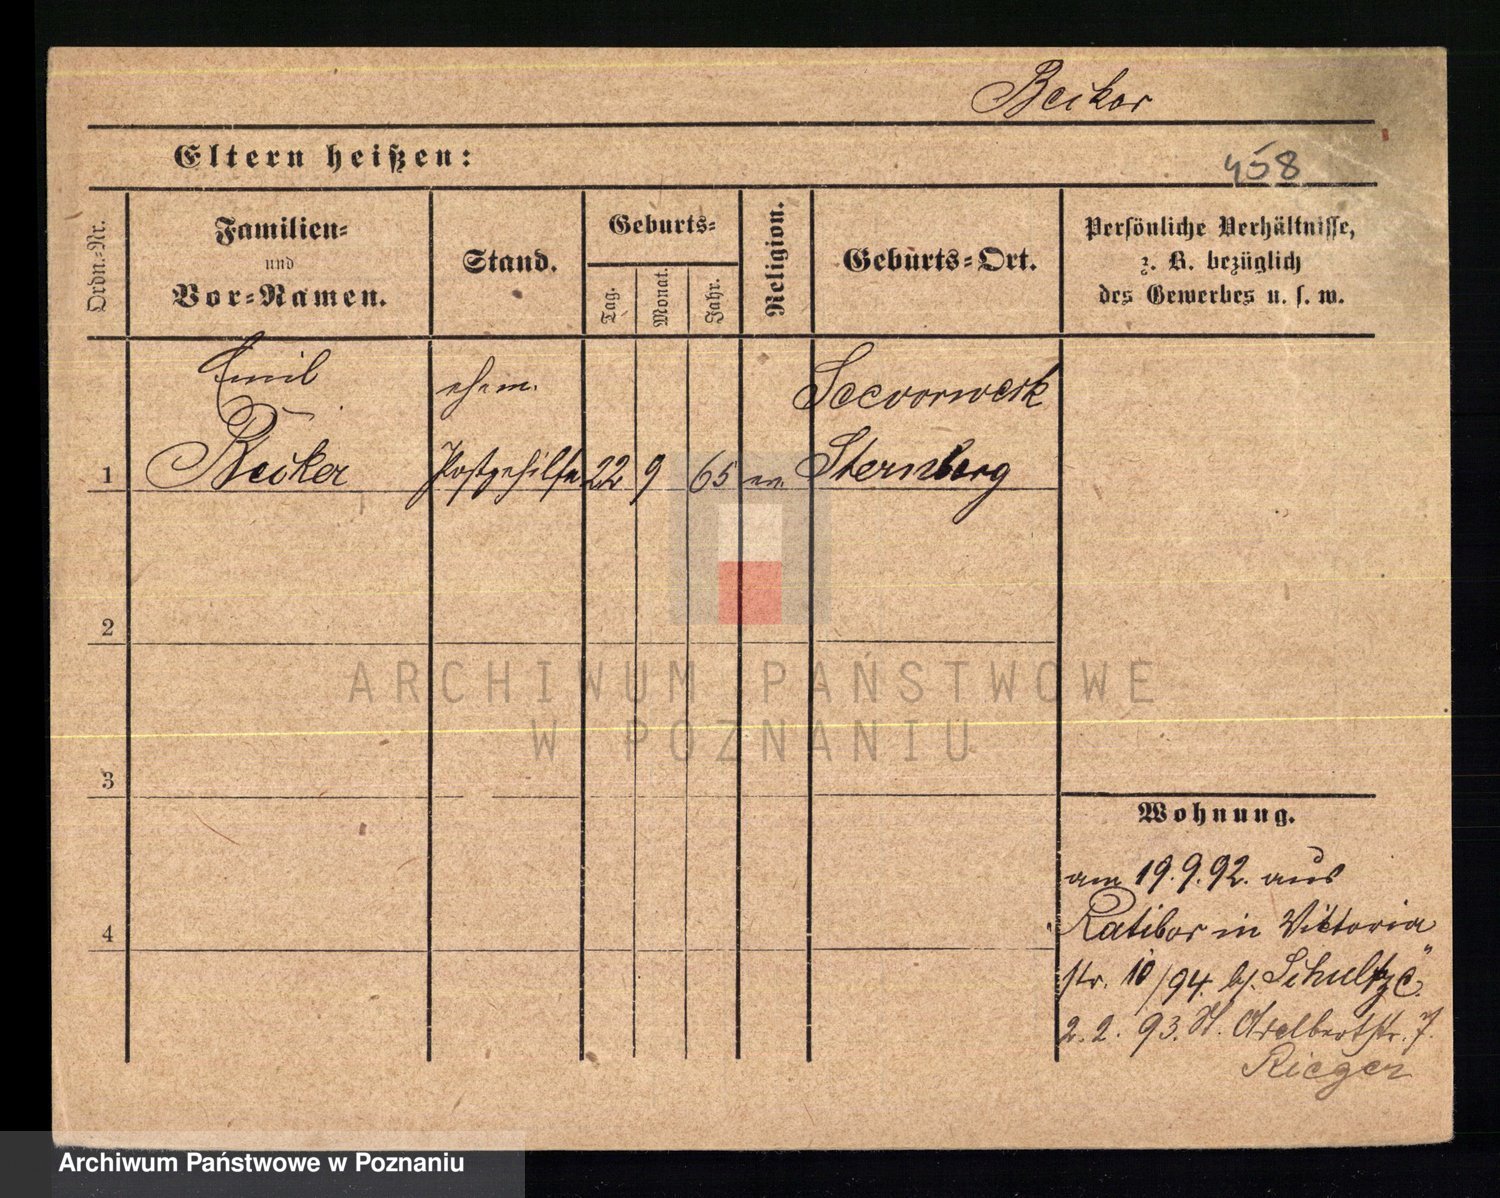 Becker
Eltern heißen:
458
Ordn.-Nr.
Familien-
und
Vor-Namen.
Stand.
Geburts-
Tag.
Monat.
Jahr.
Religion.
Geburts-Ort.
Persönliche Verhältnisse,
z. B. bezüglich
des Gewerbes u. s. w.
Emil
Becker
ehem.
Postgehilfe
22
9
65
ev.
Seevorwerk
Sternberg
1
2
3
4
Wohnung.
am 19.9.92. aus
Ratibor in Viktoria
str. 10/94. bj. Schultz
2.2.93. St. Adelbertstr. 7.
Rieger
ARCHIWUM PAŃSTWOWE
W POZNANIU
Archiwum Państwowe w Poznaniu